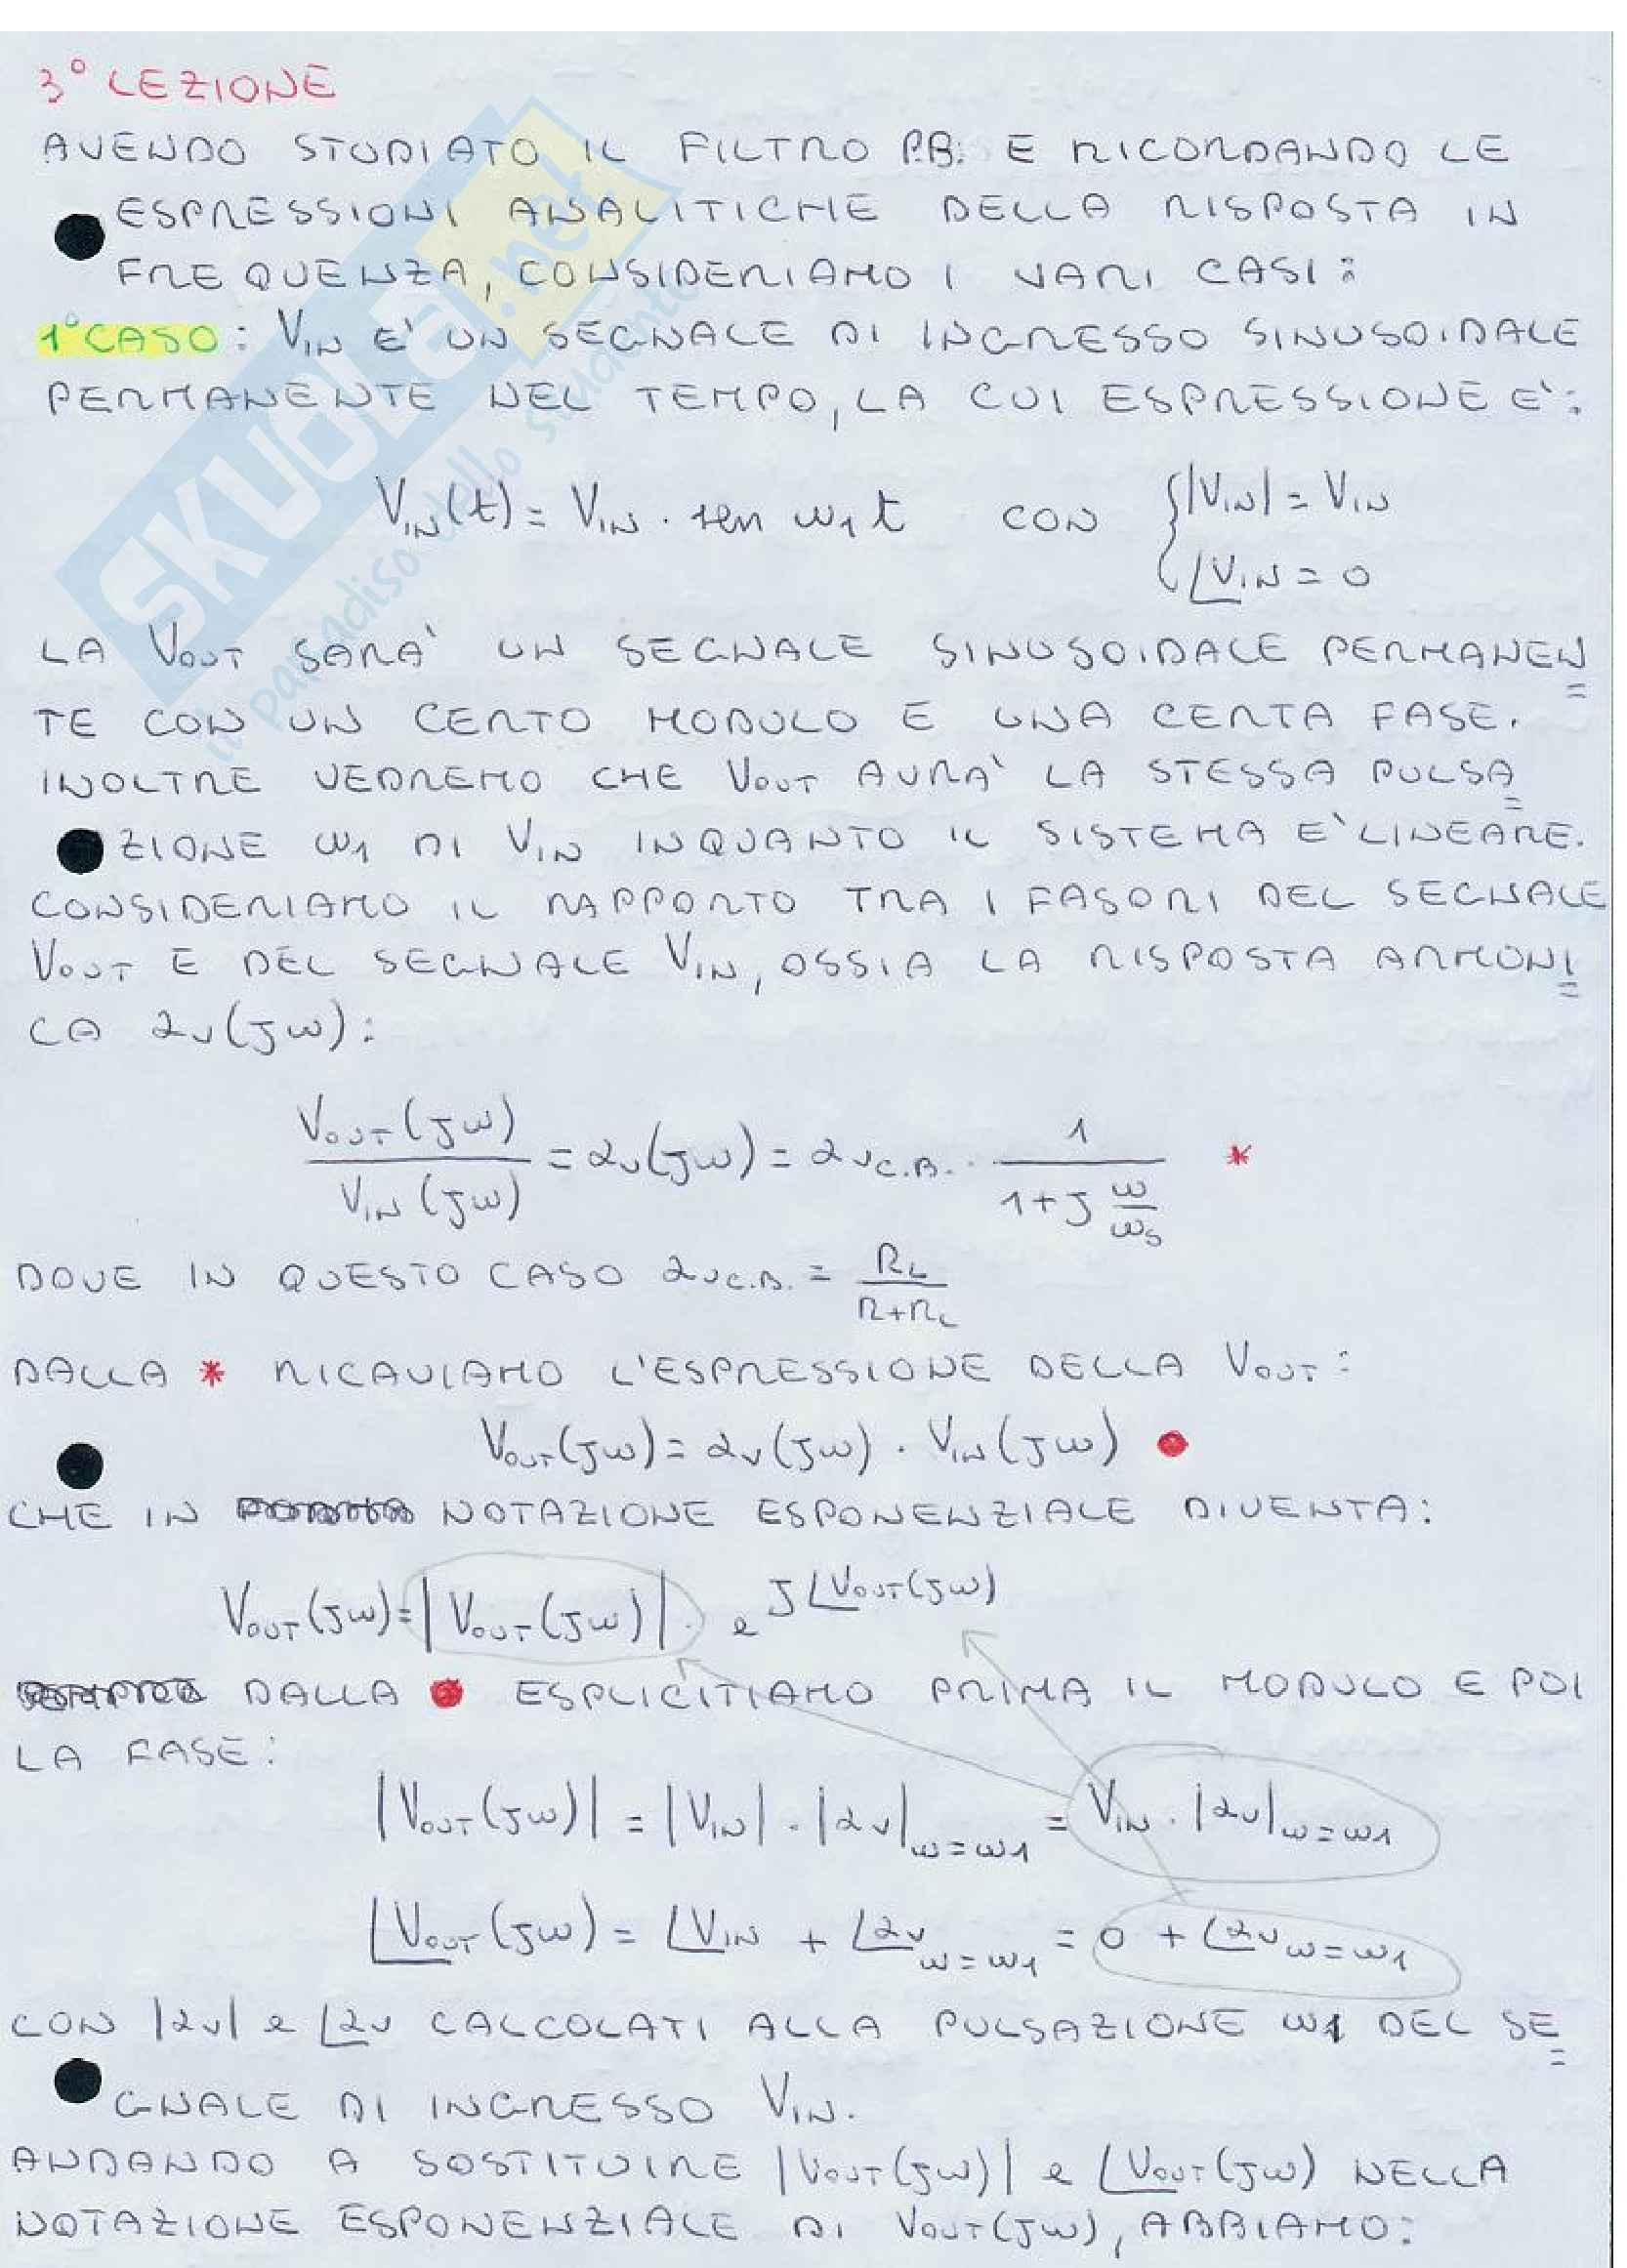 3° LEZIONE
AVENDO STUDIATO IL FILTRO P.B. E RICORDANDO LE
ESPRESSIONI ANALITICHE DELLA RISPOSTA IN
FREQUENZA, CONSIDERIAMO I VARI CASI:
1° CASO: VIN E' UN SEGNALE DI INGRESSO SINUSOIDALE
PERMANENTE NEL TEMPO, LA CUI ESPRESSIONE E':
VIN(t) = VIN · sen ω1t CON { |VIN| = VIN
∠VIN = 0
LA VOUT SARA' UN SEGNALE SINUSOIDALE PERMANEN
TE CON UN CERTO MODULO E UNA CERTA FASE.
INOLTRE VEDREMO CHE VOUT AVRA' LA STESSA PULSA
ZIONE ω1 DI VIN INQUANTO IL SISTEMA E' LINEARE.
CONSIDERIAMO IL RAPPORTO TRA I FASORI DEL SEGNALE
VOUT E DEL SEGNALE VIN, OSSIA LA RISPOSTA ARMONI
CA αv(jω):
VOUT(jω) / VIN(jω) = αv(jω) = αvC.B. · 1 / (1 + j ω/ωs) *
DOVE IN QUESTO CASO αvC.B. = RL / (R+RL)
DALLA * RICAVIAMO L'ESPRESSIONE DELLA VOUT:
VOUT(jω) = αv(jω) · VIN(jω) ●
CHE IN NOTAZIONE ESPONENZIALE DIVENTA:
VOUT(jω) = |VOUT(jω)| · e^j∠VOUT(jω)
DALLA ● ESPLICITIAMO PRIMA IL MODULO E POI
LA FASE:
|VOUT(jω)| = |VIN| · |αv|ω=ω1 = VIN · |αv|ω=ω1
∠VOUT(jω) = ∠VIN + ∠αv ω=ω1 = 0 + ∠αv ω=ω1
CON |αv| e ∠αv CALCOLATI ALLA PULSAZIONE ω1 DEL SE
GNALE DI INGRESSO VIN.
ANDANDO A SOSTITUIRE |VOUT(jω)| e ∠VOUT(jω) NELLA
NOTAZIONE ESPONENZIALE DI VOUT(jω), ABBIAMO:
SKUOLA.net
il paradiso dello studente